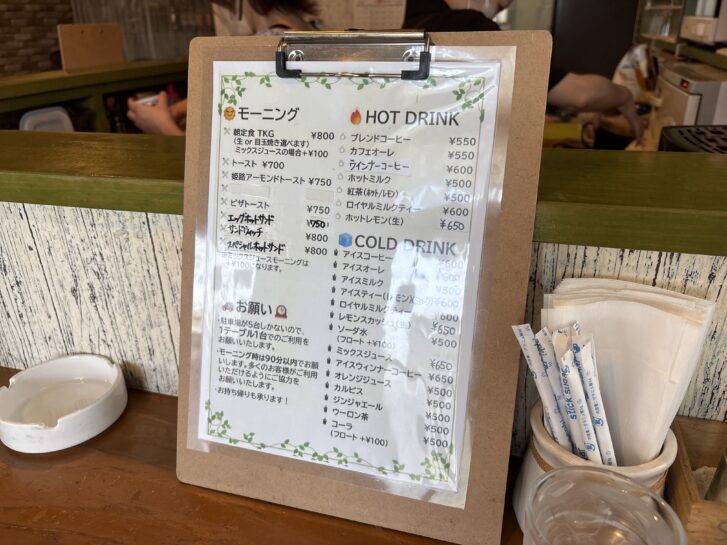 モーニング
朝定食 TKG ¥800
(生 or 目玉焼き選べます)
ミックスジュースの場合+¥100
トースト ¥700
姫路アーモンドトースト ¥750
ピザトースト ¥750
エッグホットサンド ¥750
サンドウィッチ ¥800
スペシャルホットサンド ¥800
※ミックスジュースモーニングは
+¥100になります。
お願い
・駐車場が5台しかないので、
1テーブル1台でのご利用を
お願いいたします。
・モーニング時は90分以内でお願
いします。多くのお客様がご利用
いただけるようにご協力を
お願いいたします。
お持ち帰りも承ります!
HOT DRINK
ブレンドコーヒー ¥550
カフェオーレ ¥550
ウインナーコーヒー ¥600
ホットミルク ¥500
紅茶(ホット/レモン) ¥500
ロイヤルミルクティー ¥600
ホットレモン(生) ¥650
COLD DRINK
アイスコーヒー ¥600
アイスオーレ
アイスミルク
アイスティー(レモン) ¥600
ロイヤルミルクティー ¥600
レモンスカッシュ(生) ¥650
ソーダ水 ¥500
(フロート +¥100)
ミックスジュース ¥650
アイスウィンナーコーヒー ¥650
オレンジジュース ¥500
カルピス ¥500
ジンジャエール ¥500
ウーロン茶 ¥500
コーラ ¥500
(フロート +¥100)